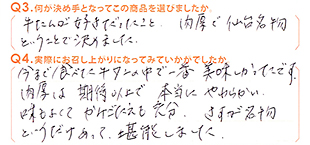 Q3.何が決め手となってこの商品を選びましたか。
牛たんが好きだったこと。肉厚で仙台名物
ということで決めました。
Q4.実際にお召し上がりになってみていかがでしたか。
今まで食べた牛タンの中で一番美味しかったです。
肉厚は期待以上で本当にやわらかい。
味もよくてかみごたえも充分。さすが名物
というだけあって堪能しました。